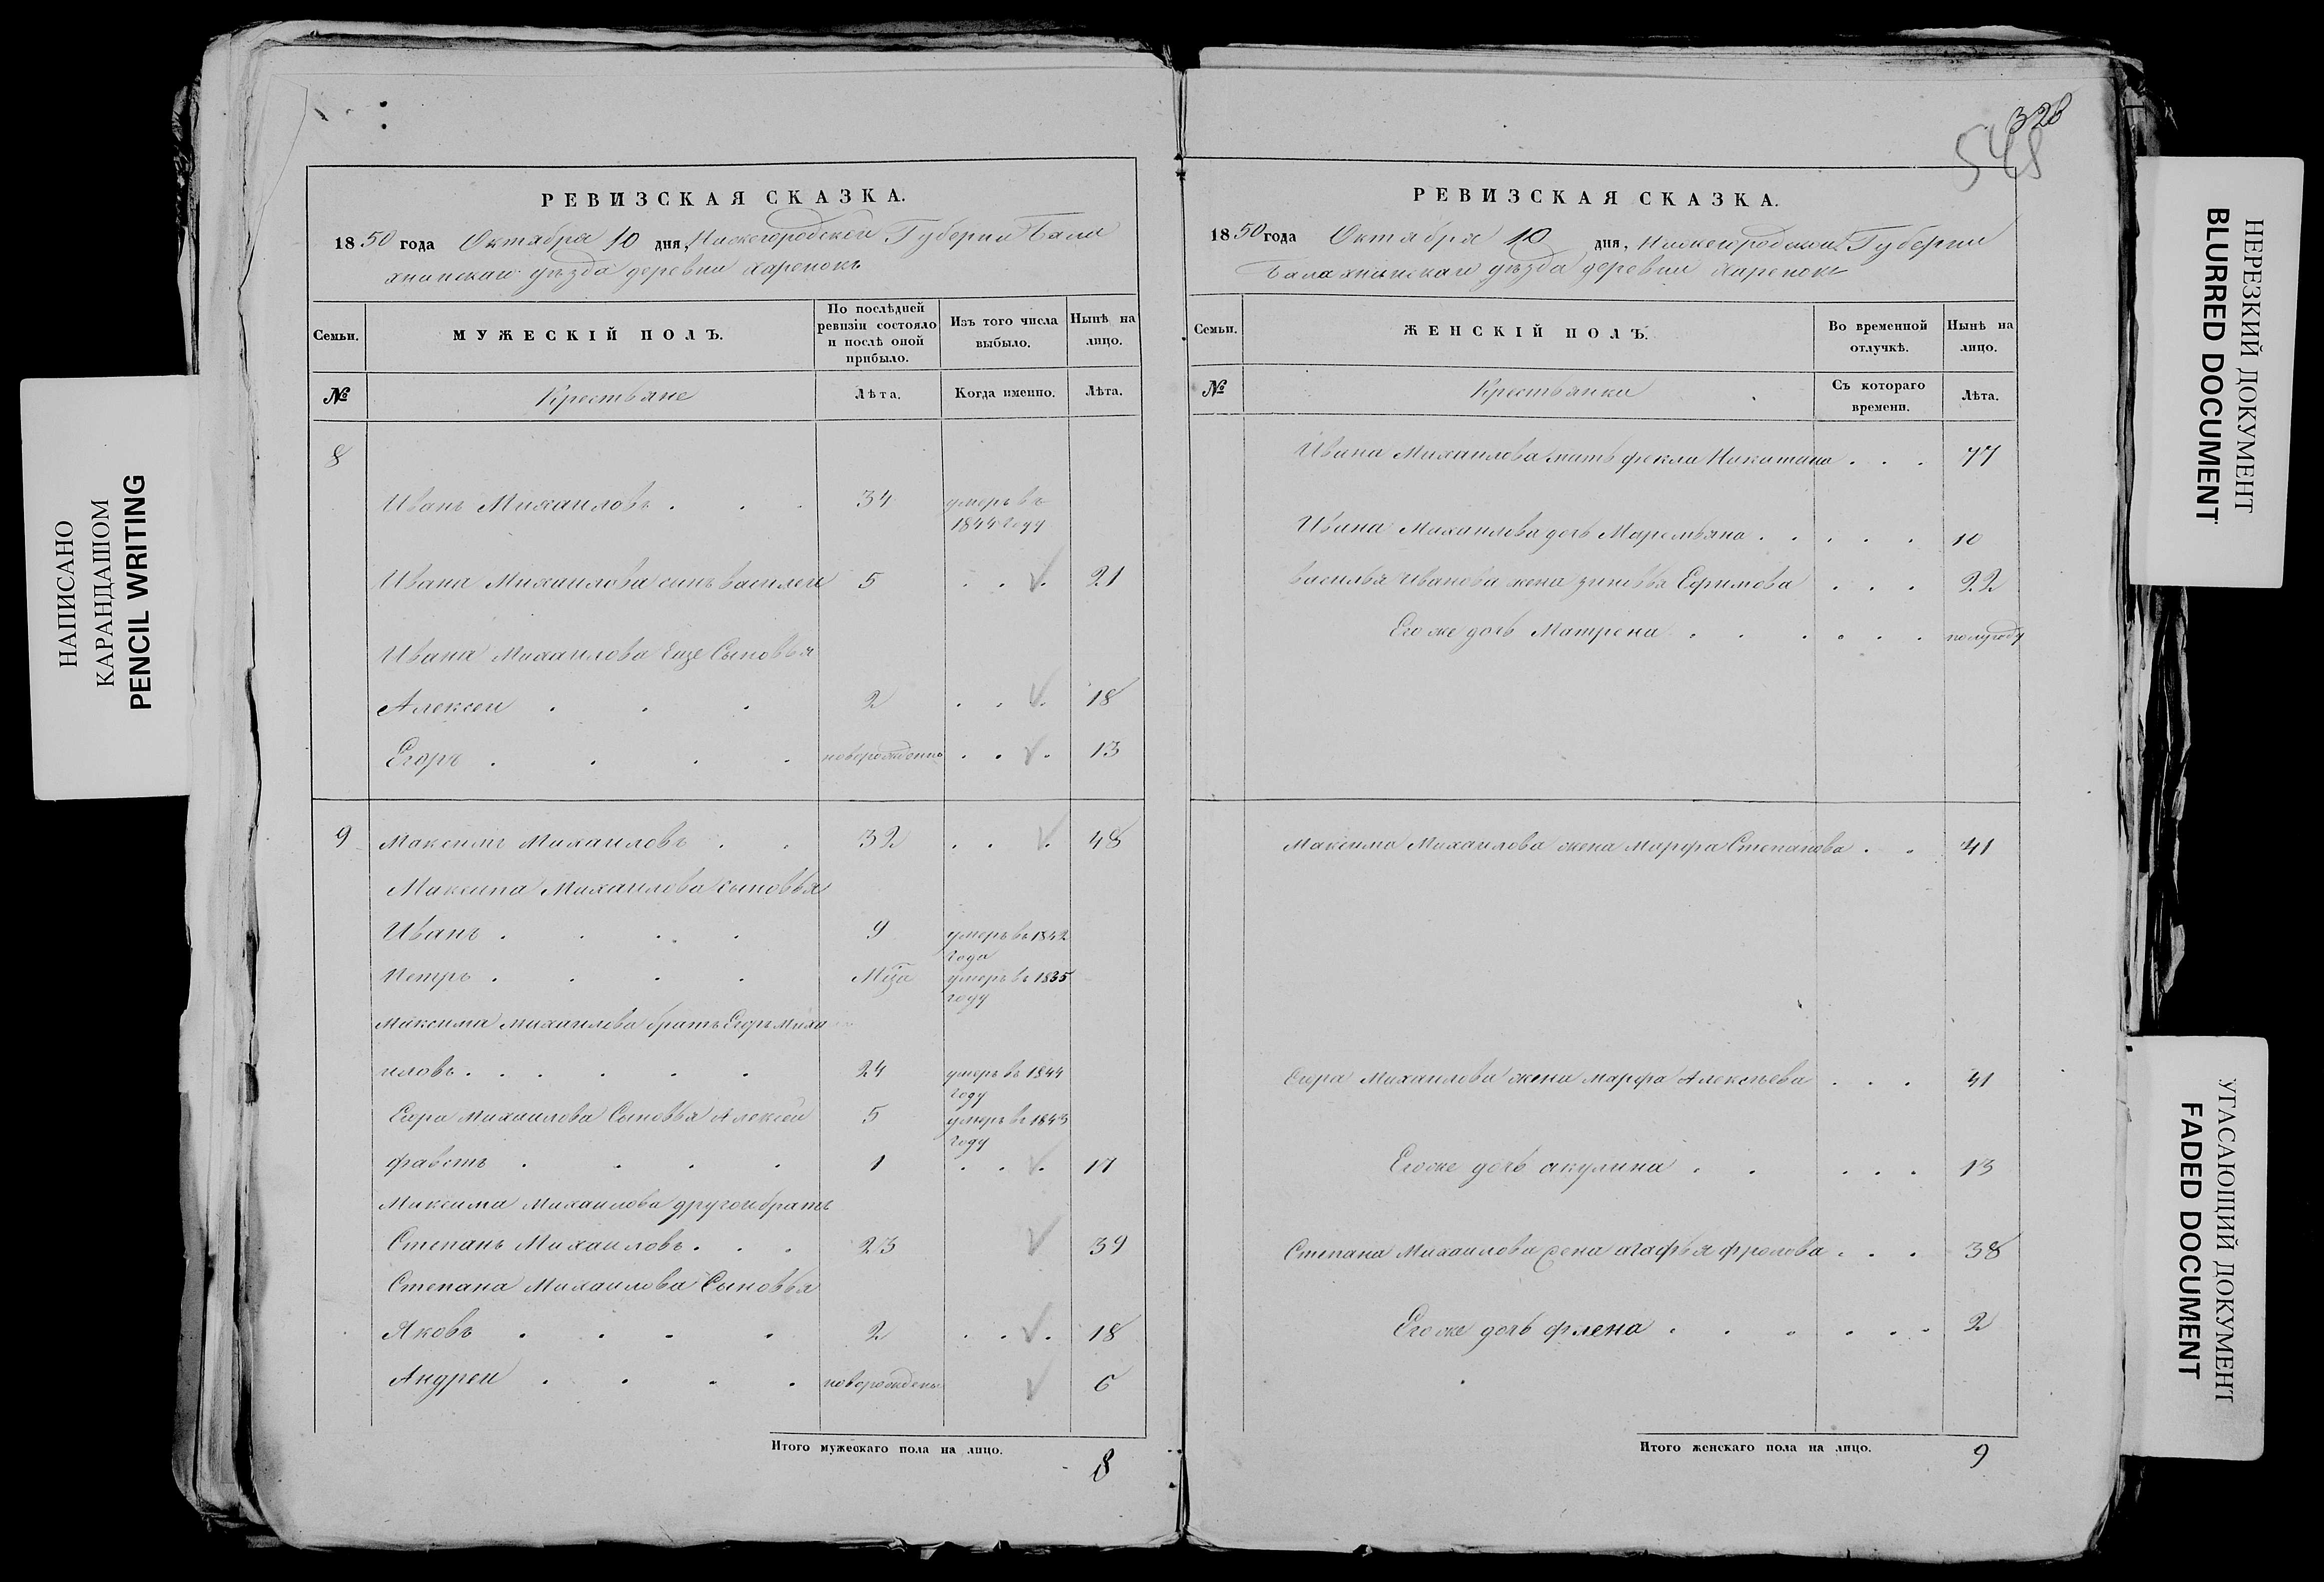 НАПИСАНО
КАРАНДАШОМ
PENCIL WRITING
РЕВИЗСКАЯ СКАЗКА.
1850 года Октября 10 дня, Нижегородской Губернии Бала
хнинскаго уѣзда деревни харенокъ
Семьи.
МУЖЕСКІЙ ПОЛЪ.
По послѣдней
ревизіи состояло
и послѣ оной
прибыло.
Изъ того числа
выбыло.
Нынѣ на
лицо.
№
Крестьяне
Лѣта.
Когда именно.
Лѣта.
8
Иванъ Михаиловъ . . . 34 умеръ въ
1844 году
Ивана Михаилова сынъ василеи 5 . . √. 21
Ивана Михаилова Еще Сыновья
Алексеи . . . 2 . . √. 18
Егоръ . . . . новорожденъ . . √. 13
9 Максимъ Михаиловъ . . 32 . . √. 48
Максима Михаилова сыновья
Иванъ . . . . 9 умеръ въ 1842
года
Петръ . . . . Мца умеръ въ 1835
году
Максима михаилова братъ Егоръ миха
иловъ . . . . . . 24 умеръ въ 1844
году
Егора михаилова Сыновья Алексеи 5 умеръ въ 1843
году
фавстъ . . . . 1 . . √. 17
Максима Михаилова другои братъ
Степанъ Михаиловъ . . . 23 √ 39
Степана Михаилова Сыновья
Яковъ . . . . 2 . . √. 18
Андреи . . . . новорожденъ √ 6
Итого мужескаго пола на лицо.
8
326
548
РЕВИЗСКАЯ СКАЗКА.
1850 года Октября 10 дня, Нижегородской Губернии
Балахнинскаго уѣзда деревни харенокъ
Семьи.
ЖЕНСКІЙ ПОЛЪ.
Во временной
отлучкѣ.
Нынѣ на
лицо.
№
Крестьянки
Съ котораго
времени.
Лѣта.
Ивана Михаилова мать фекла Никитина . . . 77
Ивана Михаилова дочь Маремьяна . . . . . 10
василья иванова жена зиновья Ефимова . . . 22
Его же дочь Матрена . . . . . . полугоду
Максима Михаилова жена марфа Степанова . . 41
Егора Михаилова жена марфа Алексѣева . . . 41
Его же дочь акулина . . . . . 13
Степана Михаилова жена агафья фролова . . . 38
Его же дочь флена . . . . . . 2
Итого женскаго пола на лицо.
9
НЕРЕЗКИЙ ДОКУМЕНТ
BLURRED DOCUMENT
УГАСАЮЩИЙ ДОКУМЕНТ
FADED DOCUMENT